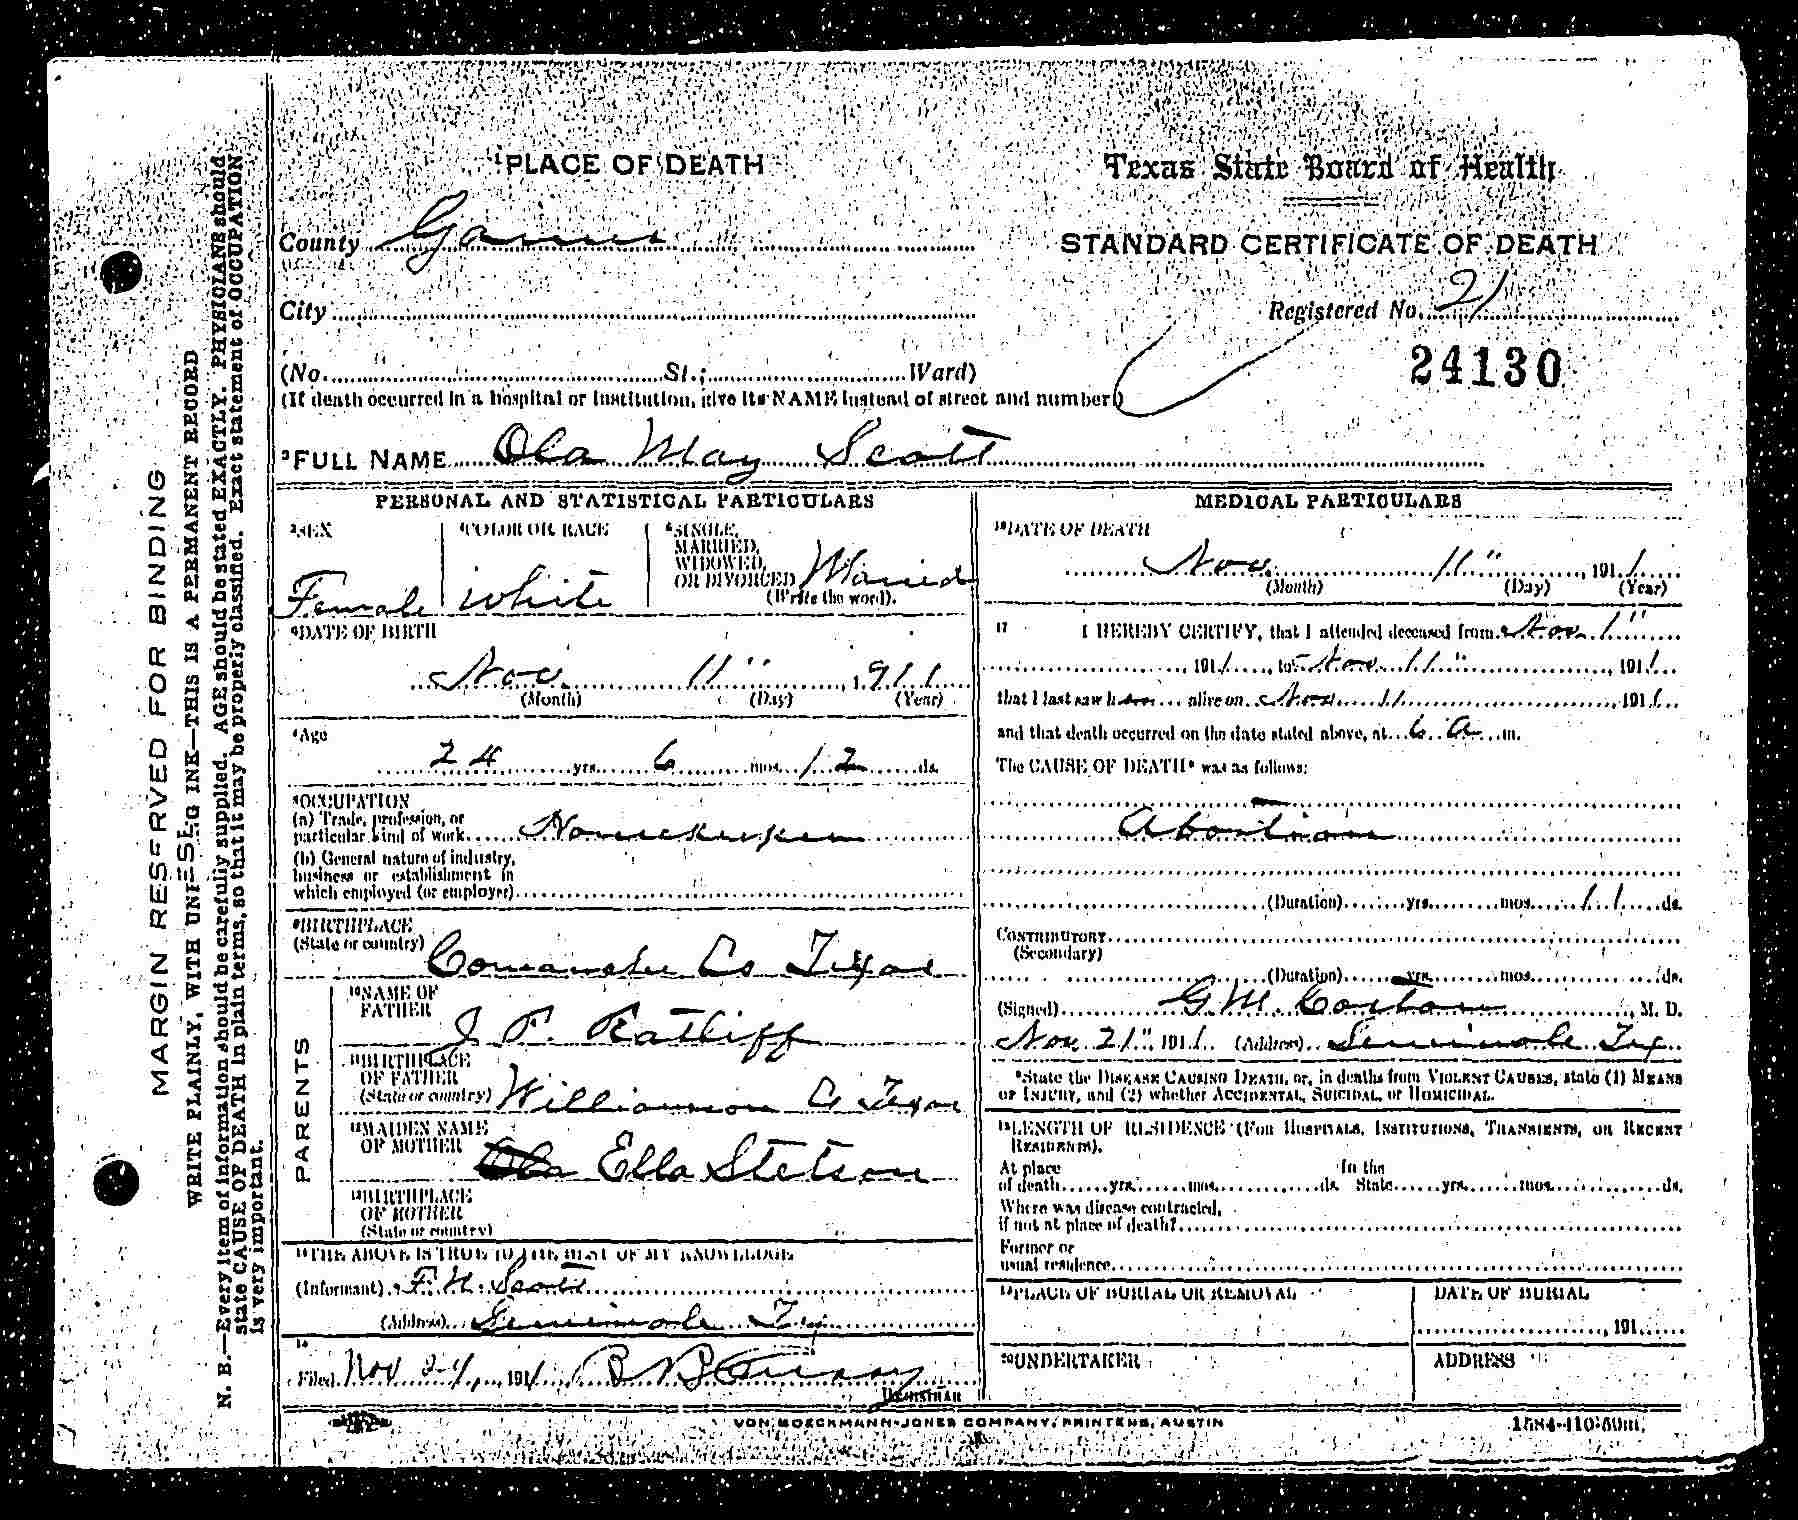 MARGIN RESERVED FOR BINDING
WRITE PLAINLY, WITH UNFADING INK—THIS IS A PERMANENT RECORD
N. B.—Every item of information should be carefully supplied. AGE should be stated EXACTLY. PHYSICIANS should
state CAUSE OF DEATH in plain terms, so that it may be properly classified. Exact statement of OCCUPATION
is very important.
1 PLACE OF DEATH
Texas State Board of Health
County Gaines
STANDARD CERTIFICATE OF DEATH
City
Registered No. 21
(No. St.; Ward)
24130
(If death occurred in a hospital or institution, give its NAME instead of street and number)
2 FULL NAME Ola May Scott
PERSONAL AND STATISTICAL PARTICULARS
3 SEX
Female
4 COLOR OR RACE
White
5 SINGLE,
MARRIED,
WIDOWED,
OR DIVORCED Married
(Write the word).
6 DATE OF BIRTH
Nov. 11" 1911
(Month) (Day) (Year)
Age
24 yrs. 6 mos. 12 ds.
8 OCCUPATION
(a) Trade, profession, or
particular kind of work Housekeeper
(b) General nature of industry,
business or establishment in
which employed (or employer)
9 BIRTHPLACE
(State or country) Comanche Co Texas
PARENTS
10 NAME OF
FATHER J F. Ratliff
11 BIRTHPLACE
OF FATHER
(State or country) Williamson Co Texas
12 MAIDEN NAME
OF MOTHER Ola Ella Stetson
13 BIRTHPLACE
OF MOTHER
(State or country)
14 THE ABOVE IS TRUE TO THE BEST OF MY KNOWLEDGE
(Informant) F. H. Scott
(Address) Seminole Tx
15
Filed Nov 24, 1911
REGISTRAR
MEDICAL PARTICULARS
16 DATE OF DEATH
Nov. 11" 1911
(Month) (Day) (Year)
17 I HEREBY CERTIFY, that I attended deceased from Nov. 1"
1911, to Nov. 11" 1911
that I last saw her alive on Nov. 11 1911
and that death occurred on the date stated above, at 6 A m.
The CAUSE OF DEATH* was as follows:
Abortion
(Duration) yrs. mos. 11 ds.
CONTRIBUTORY
(Secondary)
(Duration) yrs. mos. ds.
(Signed) G. M. M. D.
Nov. 21" 1911 (Address) Seminole Tex
*State the DISEASE CAUSING DEATH, or, in deaths from VIOLENT CAUSES, state (1) MEANS
OF INJURY, and (2) whether ACCIDENTAL, SUICIDAL, or HOMICIDAL.
18 LENGTH OF RESIDENCE (FOR HOSPITALS, INSTITUTIONS, TRANSIENTS, OR RECENT
RESIDENTS).
At place In the
of death yrs. mos. ds. State yrs. mos. ds.
Where was disease contracted,
if not at place of death?
Former or
usual residence
19 PLACE OF BURIAL OR REMOVAL
DATE OF BURIAL
191
20 UNDERTAKER
ADDRESS
VON BOECKMANN-JONES COMPANY, PRINTERS, AUSTIN
1584-410-50m.